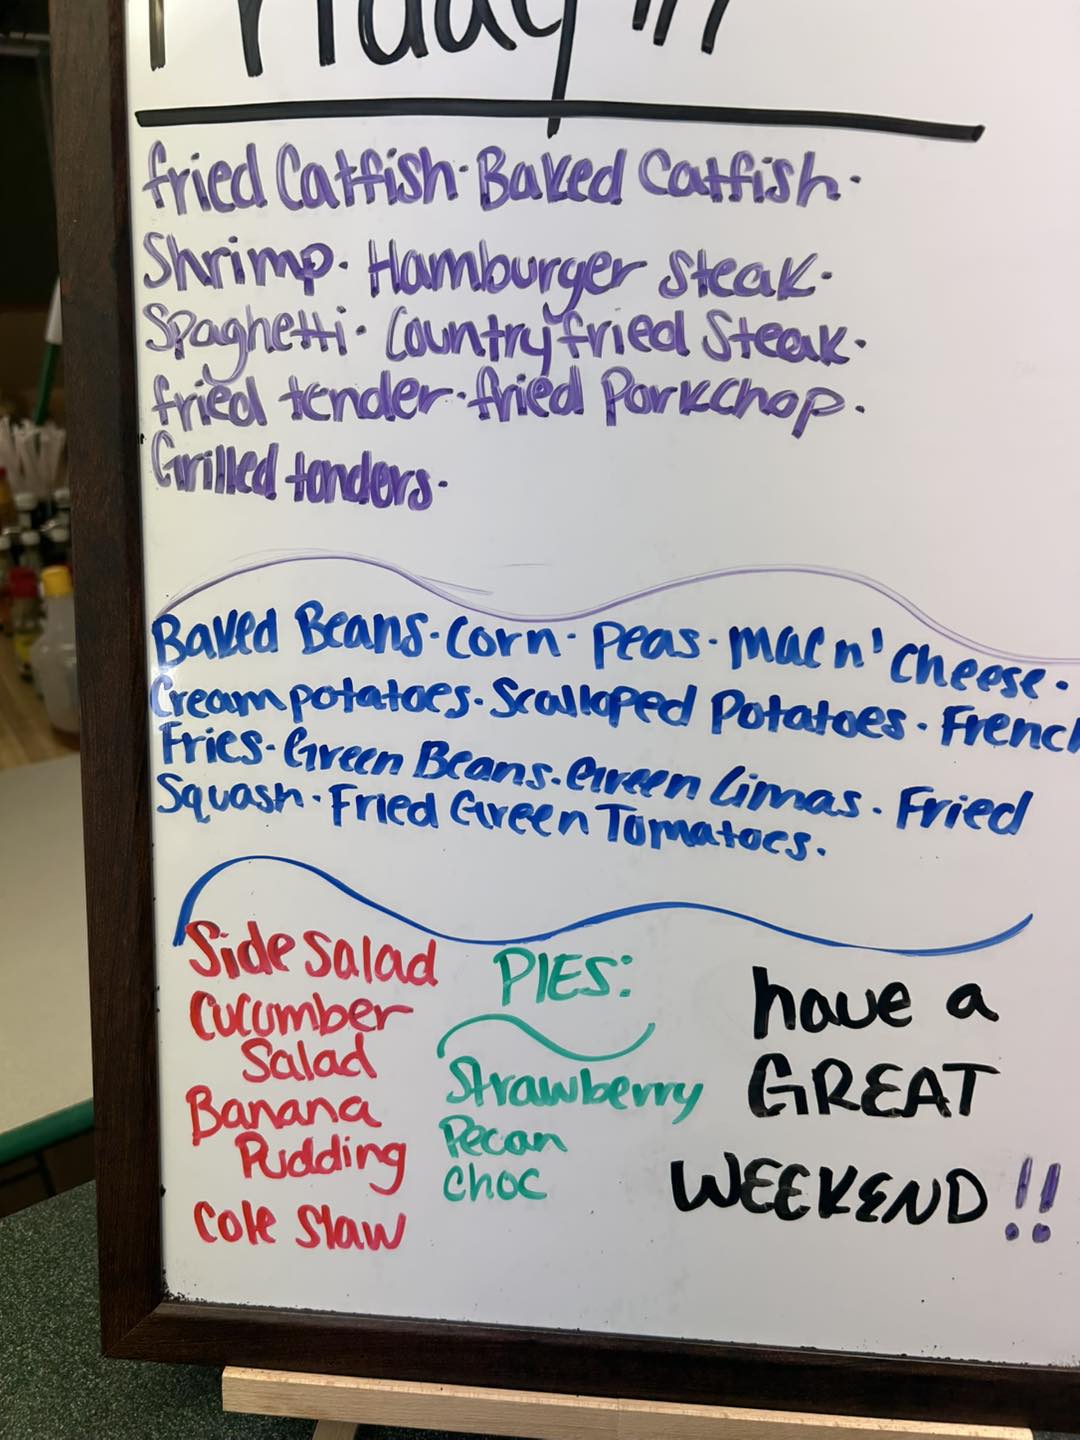 Friday !!!
fried Catfish · Baked Catfish ·
Shrimp · Hamburger Steak ·
Spaghetti · Country fried Steak ·
fried tender · fried Porkchop ·
Grilled tenders ·
Baked Beans · Corn · Peas · Mac n' Cheese ·
Cream potatoes · Scalloped Potatoes · French
Fries · Green Beans · Green Limas · Fried
Squash · Fried Green Tomatoes ·
Side Salad
Cucumber
Salad
Banana
Pudding
Cole Slaw
PIES:
Strawberry
Pecan
Choc
have a
GREAT
WEEKEND!!